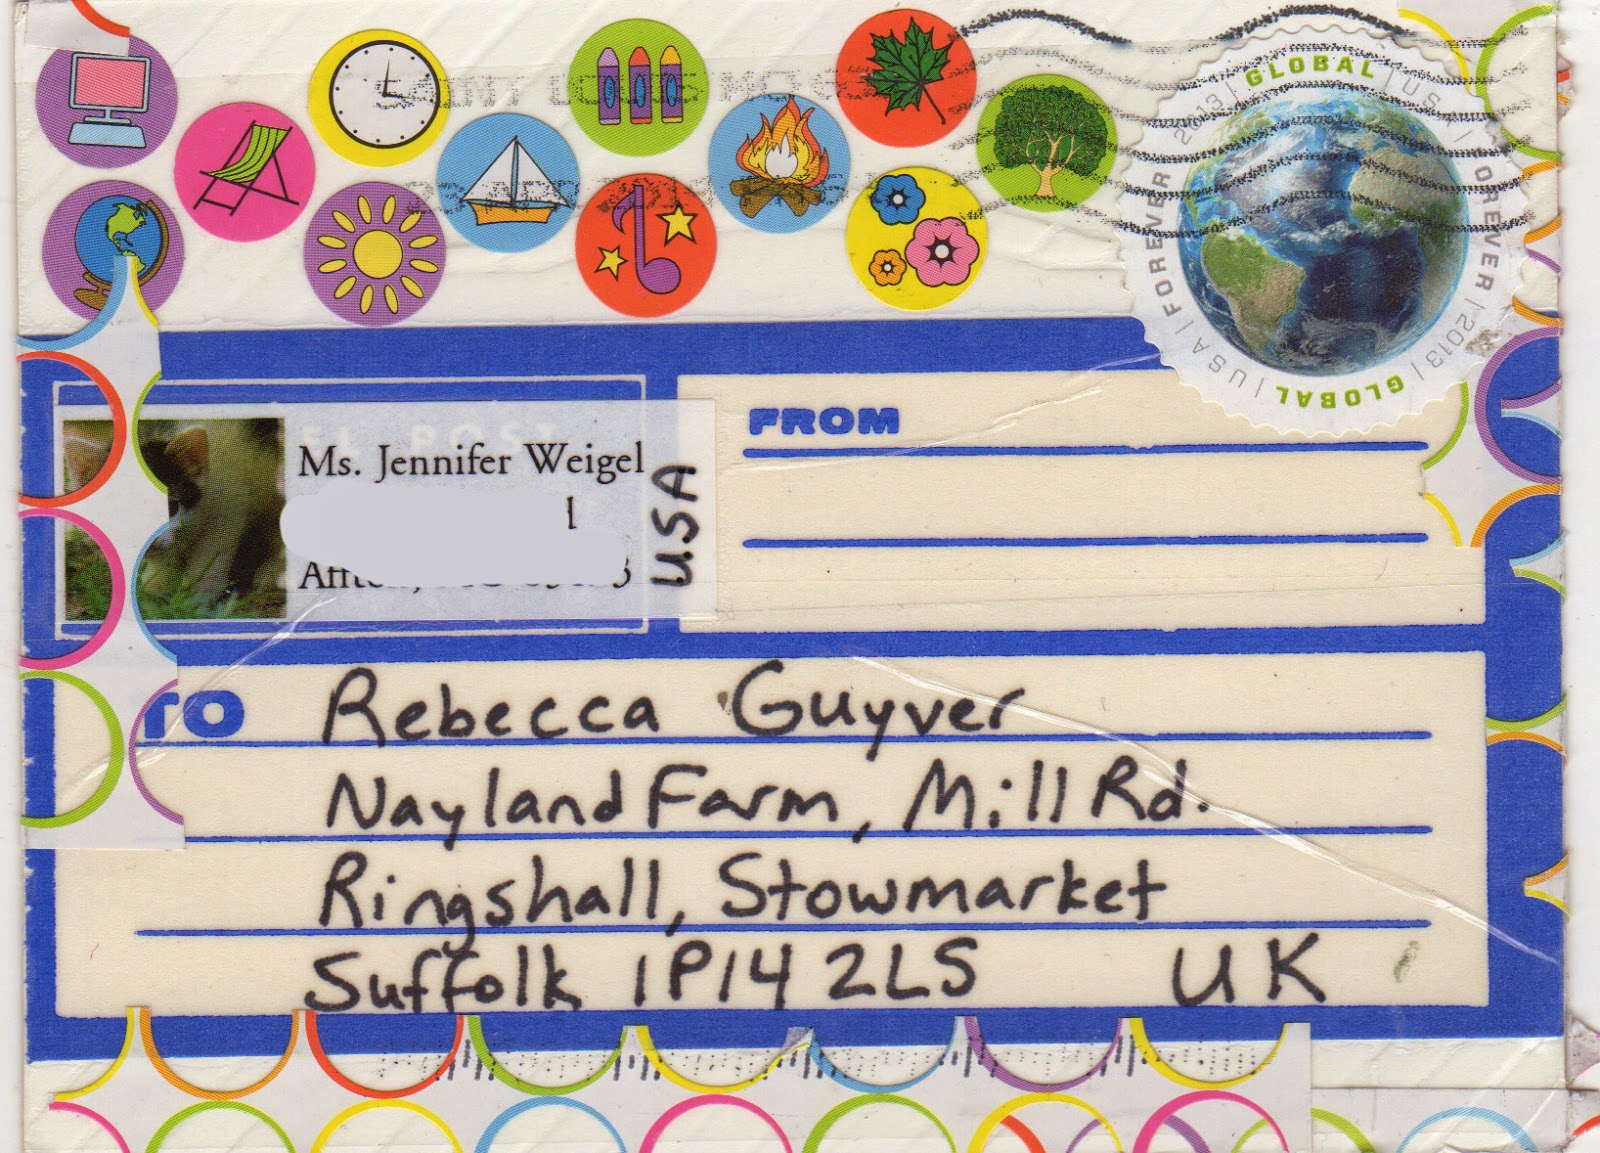 SAINT LOUIS MO
GLOBAL | USA | FOREVER | 2013 | GLOBAL | USA | FOREVER | 2013 |
EL POST
Ms. Jennifer Weigel
U.S.A
FROM
TO
Rebecca Guyver
Nayland Farm, Mill Rd.
Ringshall, Stowmarket
Suffolk IP14 2LS UK